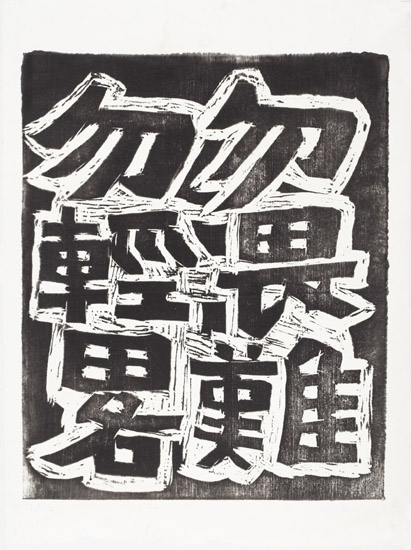 勿畏難
勿輕畧